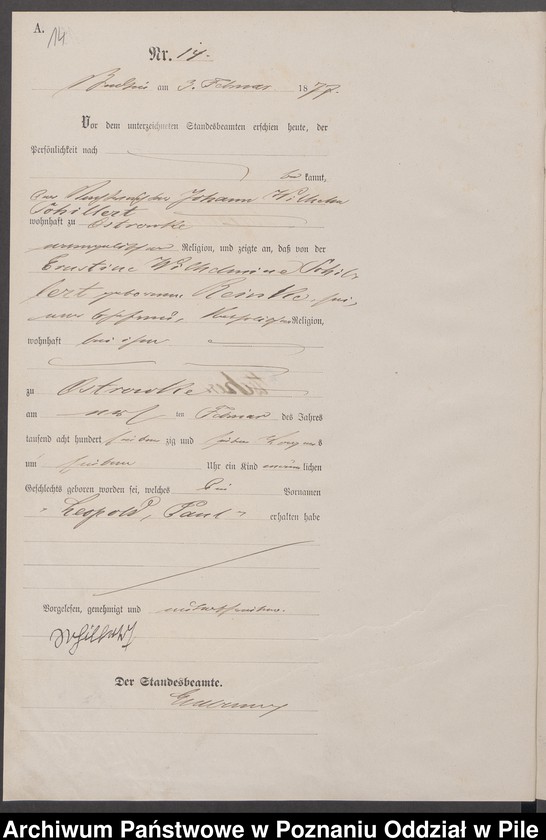 A.
14
Nr. 14.
am 3. Februar 1877.
Vor dem unterzeichneten Standesbeamten erschien heute, der
Persönlichkeit nach
be kannt,
der Johann Wilhelm
Schillert
wohnhaft zu Ostrowke
evangelischer Religion, und zeigte an, daß von der
Ernstine Wilhelmine Schil-
lert geborenen Reinke, sei-
ner Ehefrau, katholischer Religion,
wohnhaft bei ihm
zu Ostrowke
am ten Februar des Jahres
tausend acht hundert sieben zig und sieben Morgens
um sieben Uhr ein Kind männlichen
Geschlechts geboren worden sei, welches die Vornamen
Leopold, Paul
erhalten habe
Vorgelesen, genehmigt und unterschrieben.
Schillert
Der Standesbeamte.
Archiwum Państwowe w Poznaniu Oddział w Pile